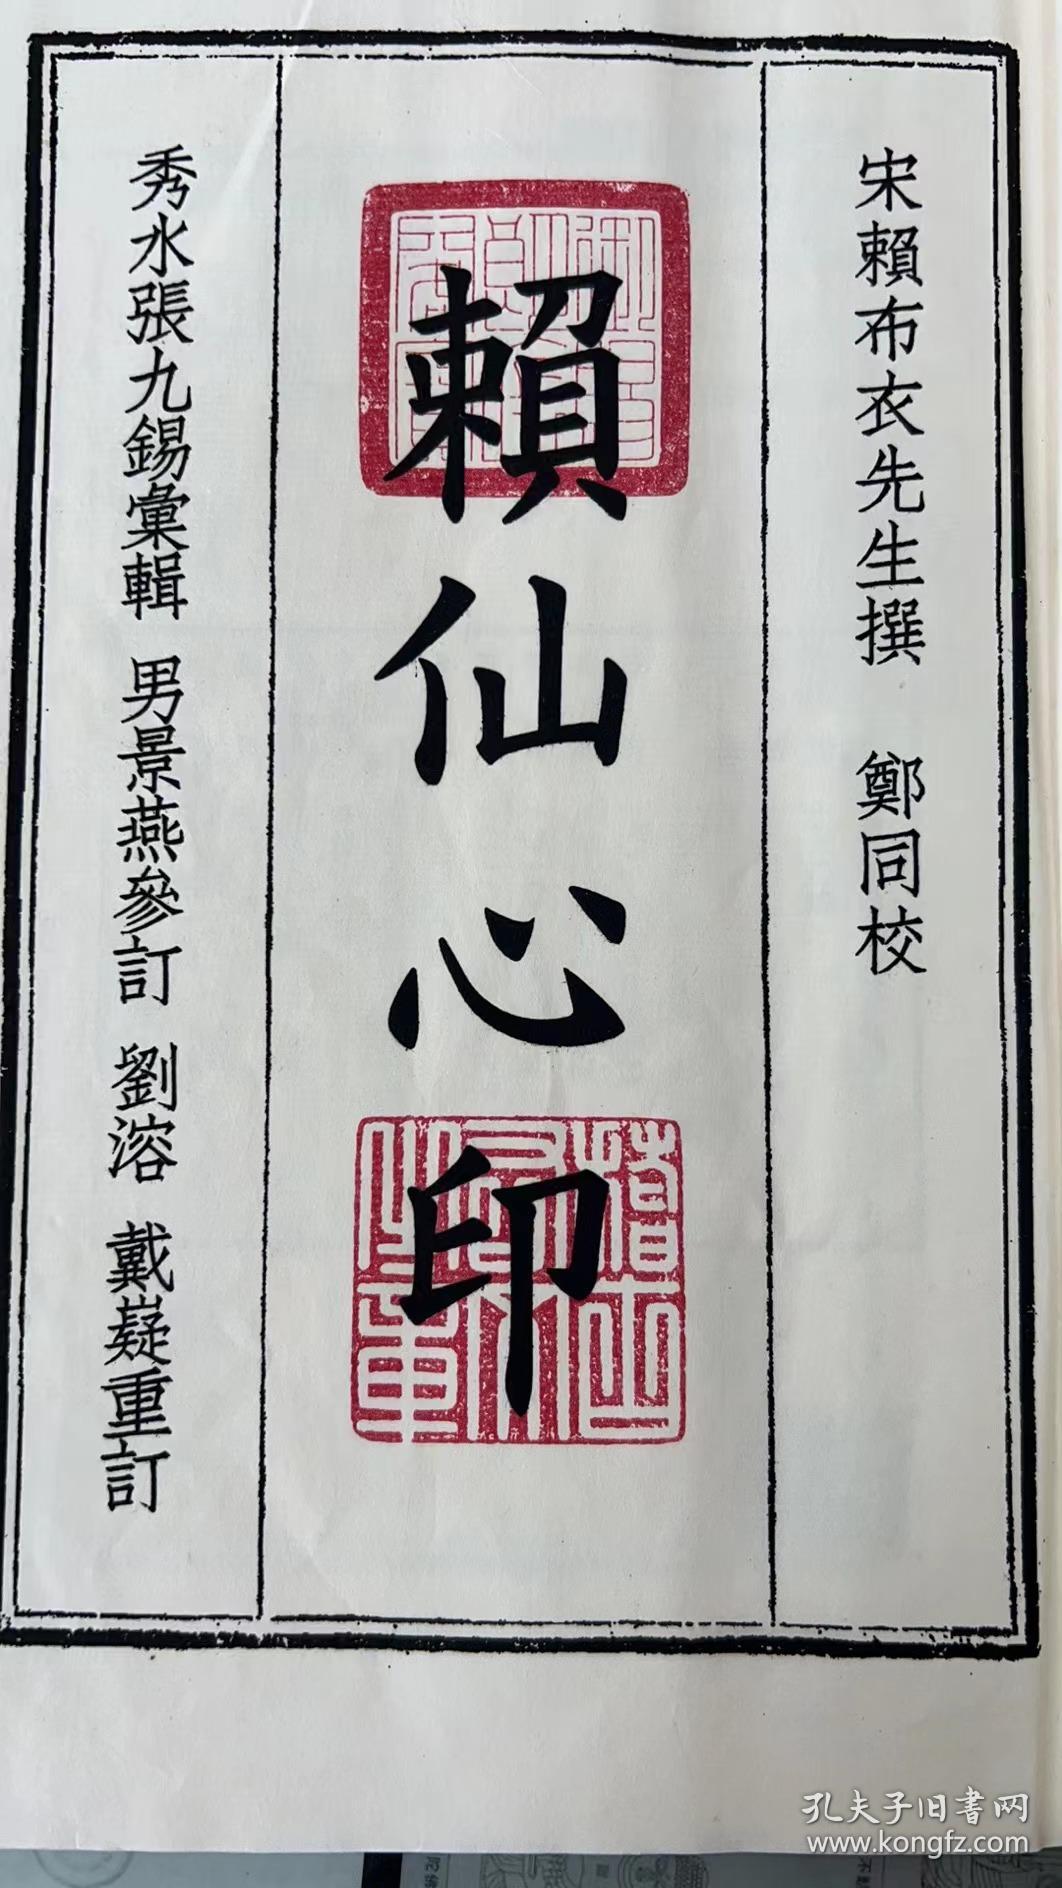 宋賴布衣先生撰　鄭同校
賴仙心印
秀水張九錫彙輯　男景燕參訂　劉溶　戴嶷重訂
孔夫子旧書网
www.kongfz.com